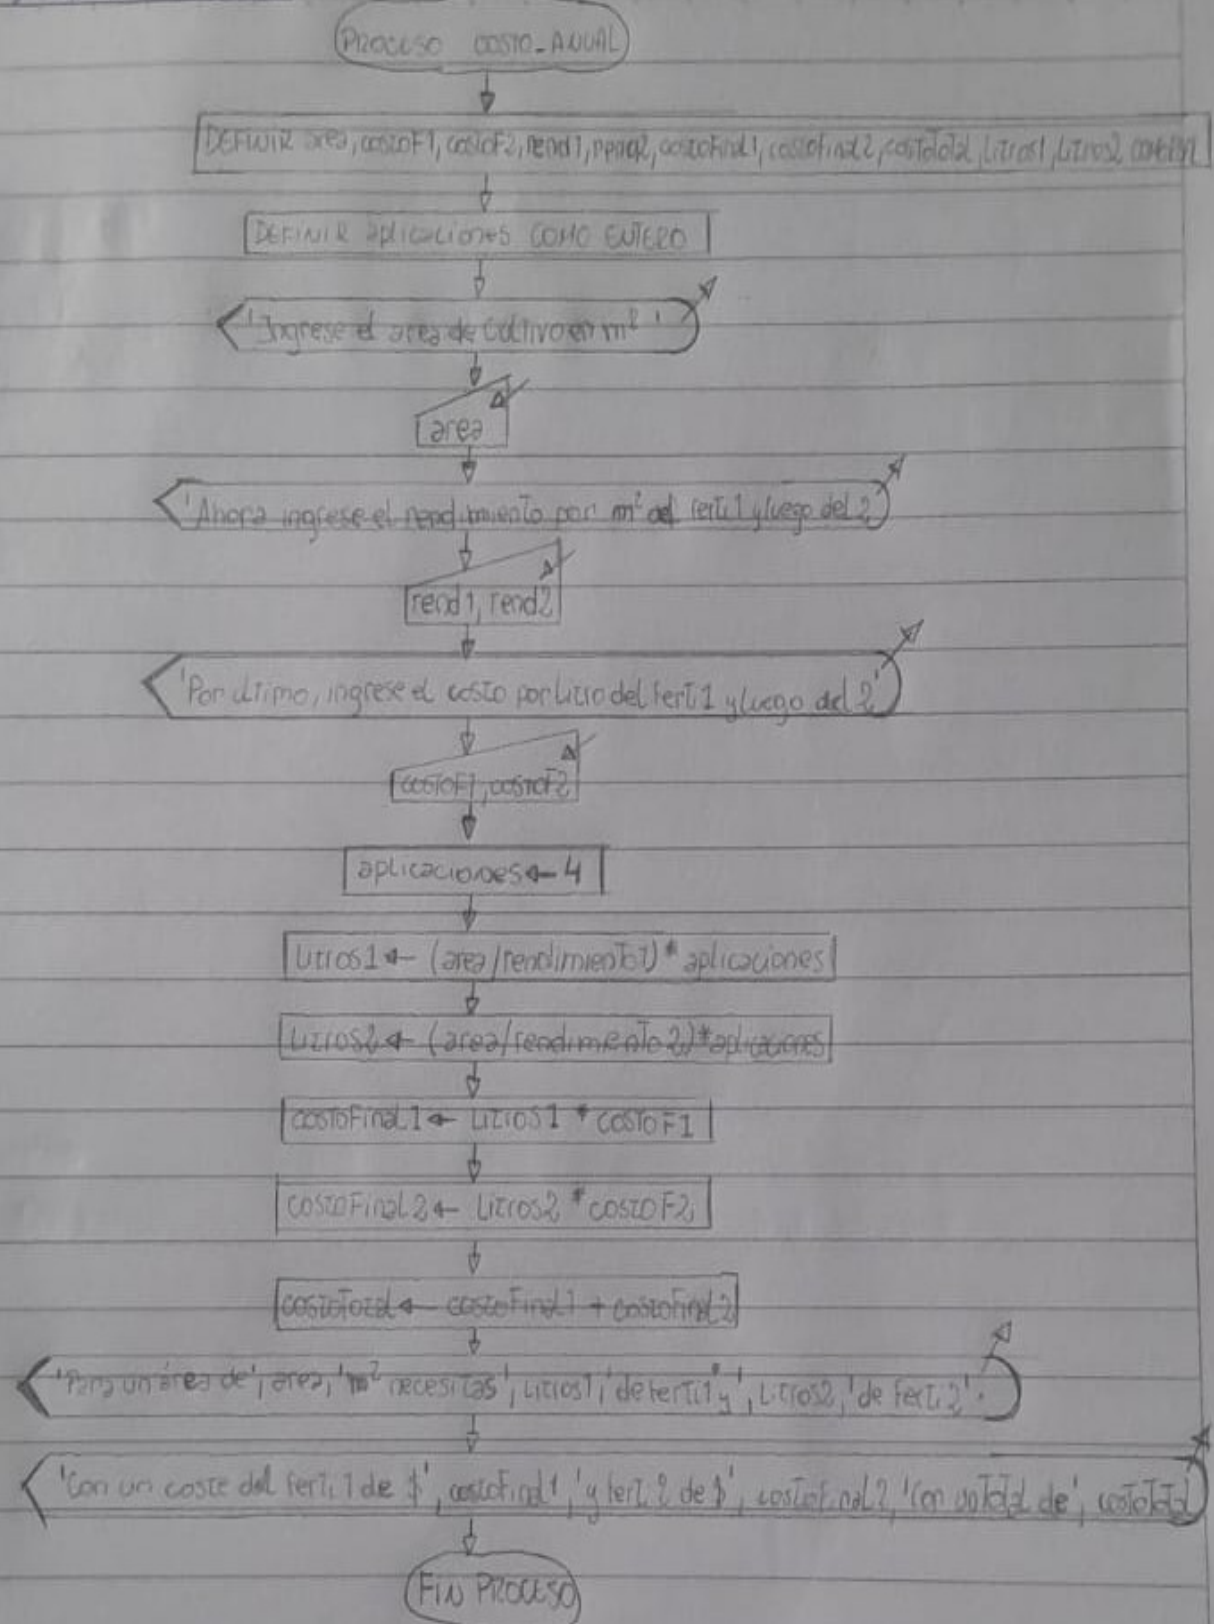 PROCESO COSTO_ANUAL
DEFINIR area, costoF1, costoF2, rend1, rend2, costoFinal1, costoFinal2, costoTotal, Litros1, Litros2
DEFINIR aplicaciones COMO ENTERO
'Ingrese el area de cultivo en m²'
area
'Ahora ingrese el rendimiento por m² del ferti.1 y luego del 2'
rend1, rend2
'Por último, ingrese el costo por litro del fert.1 y luego del 2'
costoF1, costoF2
aplicaciones ← 4
Litros1 ← (area/rendimiento1) * aplicaciones
Litros2 ← (area/rendimiento2) * aplicaciones
costoFinal1 ← Litros1 * costoF1
costoFinal2 ← Litros2 * costoF2
costoTotal ← costoFinal1 + costoFinal2
'Para un área de', area, 'm² necesitas', Litros1, 'de ferti1 y', Litros2, 'de fert.2'.
'Con un coste del fert.1 de $', costoFinal1, 'y fert.2 de $', costoFinal2, 'Con un total de', costoTotal
FIN PROCESO